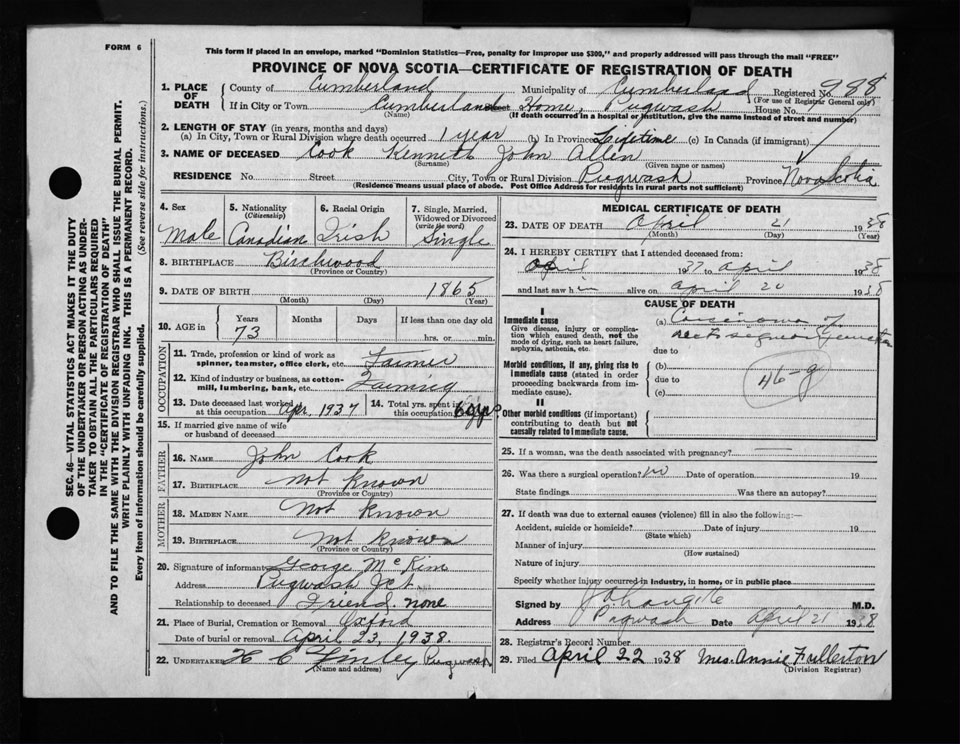 FORM 6
This form if placed in an envelope, marked "Dominion Statistics—Free, penalty for improper use $300," and properly addressed will pass through the mail "FREE"
PROVINCE OF NOVA SCOTIA—CERTIFICATE OF REGISTRATION OF DEATH
SEC. 46—VITAL STATISTICS ACT MAKES IT THE DUTY
OF THE UNDERTAKER OR PERSON ACTING AS UNDER-
TAKER TO OBTAIN ALL THE PARTICULARS REQUIRED
IN THE "CERTIFICATE OF REGISTRATION OF DEATH"
AND TO FILE THE SAME WITH THE DIVISION REGISTRAR WHO SHALL ISSUE THE BURIAL PERMIT.
WRITE PLAINLY WITH UNFADING INK. THIS IS A PERMANENT RECORD.
Every item of information should be carefully supplied. (See reverse side for instructions.)
1. PLACE OF DEATH County of Cumberland Municipality of Cumberland Registered No. 988
(For use of Registrar General only)
If in City or Town Cumberland Home, Pugwash House No.
(Name) (If death occurred in a hospital or institution, give the name instead of street and number)
2. LENGTH OF STAY (in years, months and days)
(a) In City, Town or Rural Division where death occurred 1 year (b) In Province Lifetime (c) In Canada (if immigrant)
3. NAME OF DECEASED Cook Kenneth John Allen
(Surname) (Given name or names)
RESIDENCE No. Street City, Town or Rural Division Pugwash Province Nova Scotia
(Residence means usual place of abode. Post Office Address for residents in rural parts not sufficient)
4. Sex Male
5. Nationality (Citizenship) Canadian
6. Racial Origin Irish
7. Single, Married, Widowed or Divorced (write the word) Single
8. BIRTHPLACE Birchwood
(Province or Country)
9. DATE OF BIRTH 1865
(Month) (Day) (Year)
10. AGE in Years 73 Months Days If less than one day old
hrs. or min.
OCCUPATION
11. Trade, profession or kind of work as spinner, teamster, office clerk, etc. Farmer
12. Kind of industry or business, as cotton-mill, lumbering, bank, etc. Farming
13. Date deceased last worked at this occupation Apr. 1937
14. Total yrs. spent in this occupation 60 yrs
15. If married give name of wife or husband of deceased
FATHER
16. NAME John Cook
17. BIRTHPLACE Not Known
(Province or Country)
MOTHER
18. MAIDEN NAME Not Known
19. BIRTHPLACE Not Known
(Province or Country)
20. Signature of informant George McKim
Address Pugwash Jct
Relationship to deceased Friend. none
21. Place of Burial, Cremation or Removal Oxford
Date of burial or removal April 23, 1938.
22. UNDERTAKER H C Finley Pugwash
(Name and address)
MEDICAL CERTIFICATE OF DEATH
23. DATE OF DEATH April 21 1938
(Month) (Day) (Year)
24. I HEREBY CERTIFY that I attended deceased from:
April 1937 to April 1938
and last saw him alive on April 20 1938
CAUSE OF DEATH
I
Immediate cause
Give disease, injury or complication which caused death, not the mode of dying, such as heart failure, asphyxia, asthenia, etc.
(a) Carcinoma of
recto sigmoid junction
due to
Morbid conditions, if any, giving rise to immediate cause (stated in order proceeding backwards from immediate cause).
(b)
due to
(c)
46-g
II
Other morbid conditions (if important) contributing to death but not causally related to immediate cause.
25. If a woman, was the death associated with pregnancy?
26. Was there a surgical operation? no Date of operation 19
State findings Was there an autopsy?
27. If death was due to external causes (violence) fill in also the following:—
Accident, suicide or homicide? Date of injury 19
(State which)
Manner of injury
(How sustained)
Nature of injury
Specify whether injury occurred in industry, in home, or in public place
Signed by M.D.
Address Pugwash Date April 21 1938
28. Registrar's Record Number
29. Filed April 22 1938 Mrs. Annie Fullerton
(Division Registrar)